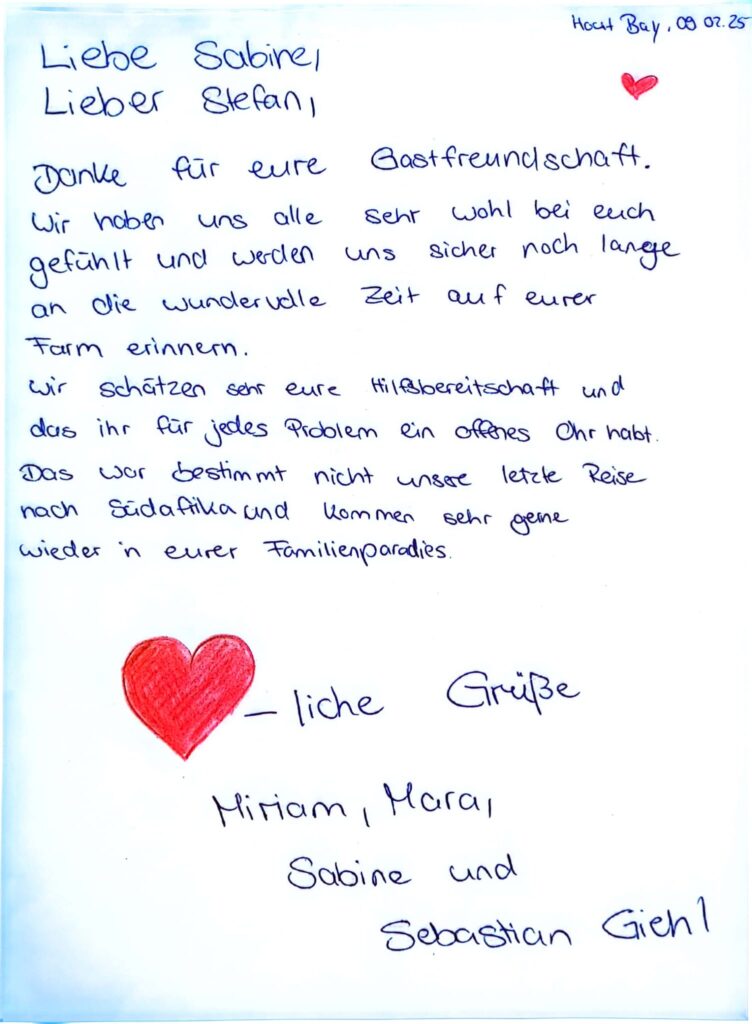 Hout Bay, 09.02.25
Liebe Sabine,
Lieber Stefan,
Danke für eure Gastfreundschaft.
Wir haben uns alle sehr wohl bei euch
gefühlt und werden uns sicher noch lange
an die wundervolle Zeit auf eurer
Farm erinnern.
Wir schätzen sehr eure Hilfsbereitschaft und
das ihr für jedes Problem ein offenes Ohr habt.
Das war bestimmt nicht unsere letzte Reise
nach Südafrika und kommen sehr gerne
wieder in eurer Familienparadies.
-liche Grüße
Miriam, Mara,
Sabine und
Sebastian Giehl